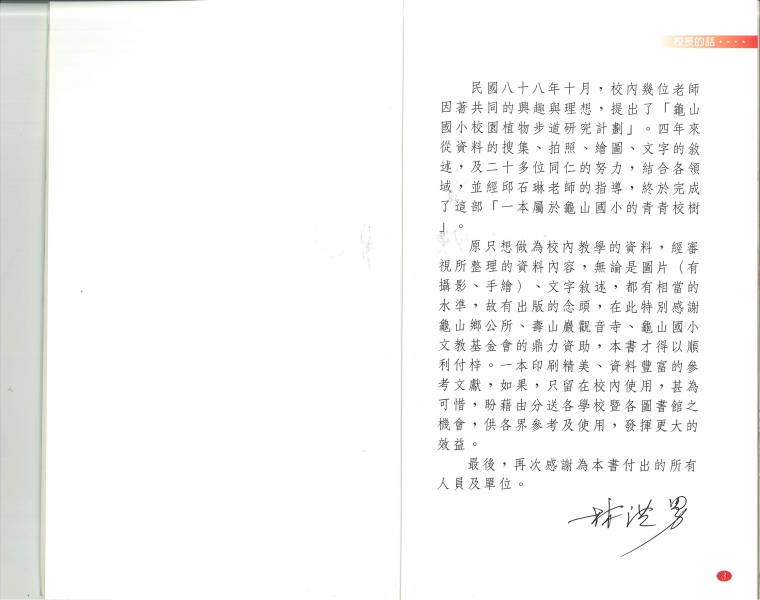 校長的話‧‧‧‧
民國八十八年十月，校內幾位老師
因著共同的興趣與理想，提出了「龜山
國小校園植物步道研究計劃」。四年來
從資料的搜集、拍照、繪圖、文字的敘
述，及二十多位同仁的努力，結合各領
域，並經邱石琳老師的指導，終於完成
了這部「一本屬於龜山國小的青青校樹
」。
原只想做為校內教學的資料，經審
視所整理的資料內容，無論是圖片（有
攝影、手繪）、文字敘述，都有相當的
水準，故有出版的念頭，在此特別感謝
龜山鄉公所、壽山巖觀音寺、龜山國小
文教基金會的鼎力資助，本書才得以順
利付梓。一本印刷精美、資料豐富的參
考文獻，如果，只留在校內使用，甚為
可惜，盼藉由分送各學校暨各圖書館之
機會，供各界參考及使用，發揮更大的
效益。
最後，再次感謝為本書付出的所有
人員及單位。
林洪男
3